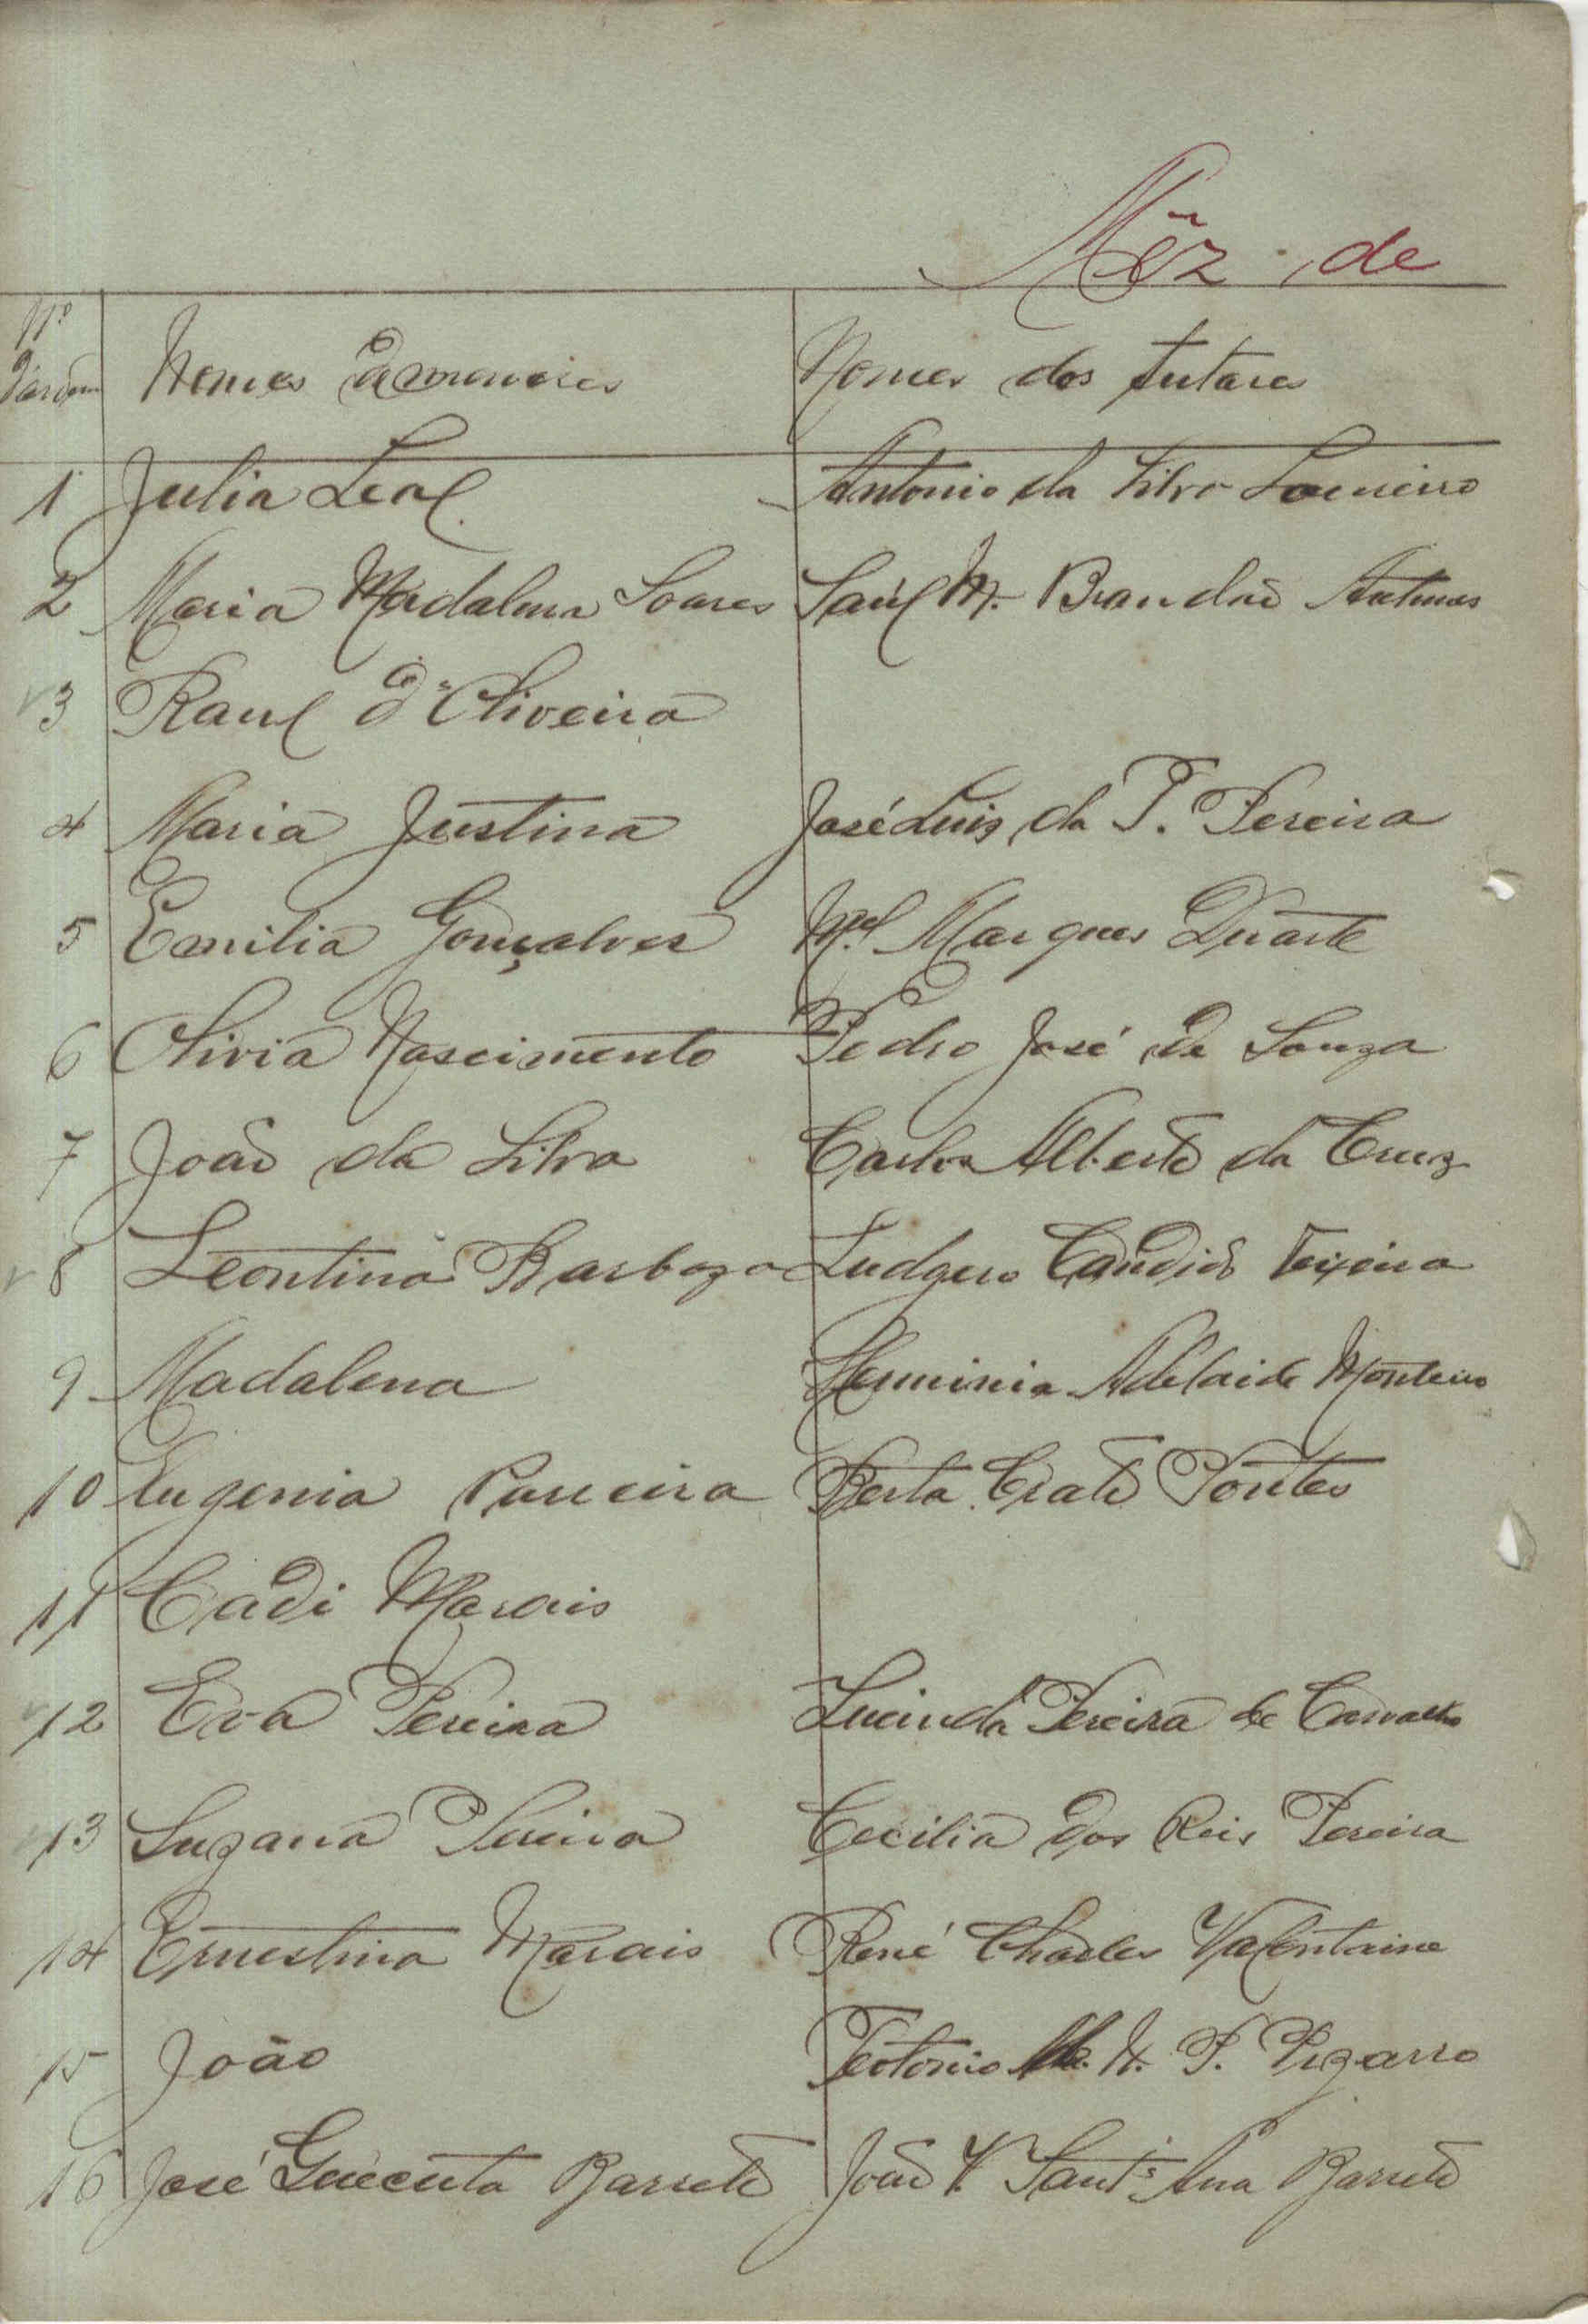 Mêz de
Nº d'ordem Nomes de menores Nomes dos tutores
1 Julia Leal Antonio da Silva Loureiro
2 Maria Madalena Soares Saúl M. Brandão Antunes
3 Raul d'Oliveira
4 Maria Justina José Luis da P. Pereira
5 Emilia Gonçalves Mel Marques Duarte
6 Olivia Nascimento Pedro José de Souza
7 João da Silva Carlos Alberto da Cruz
8 Leontina Barboza Ludgero Candido Teixeira
9 Madalena Herminia Adelaide Monteiro
10 Eugenia Parreira Berta Crato Pontes
11 Cadi Morais
12 Eva Pereira Lucinda Pereira de Carvalho
13 Suzana Pereira Cecilia dos Reis Pereira
14 Ernestina Morais René Charles Valentaine
15 João Teotonio M. P. Pizarro
16 José Barreto João V. Sant'Ana Barreto